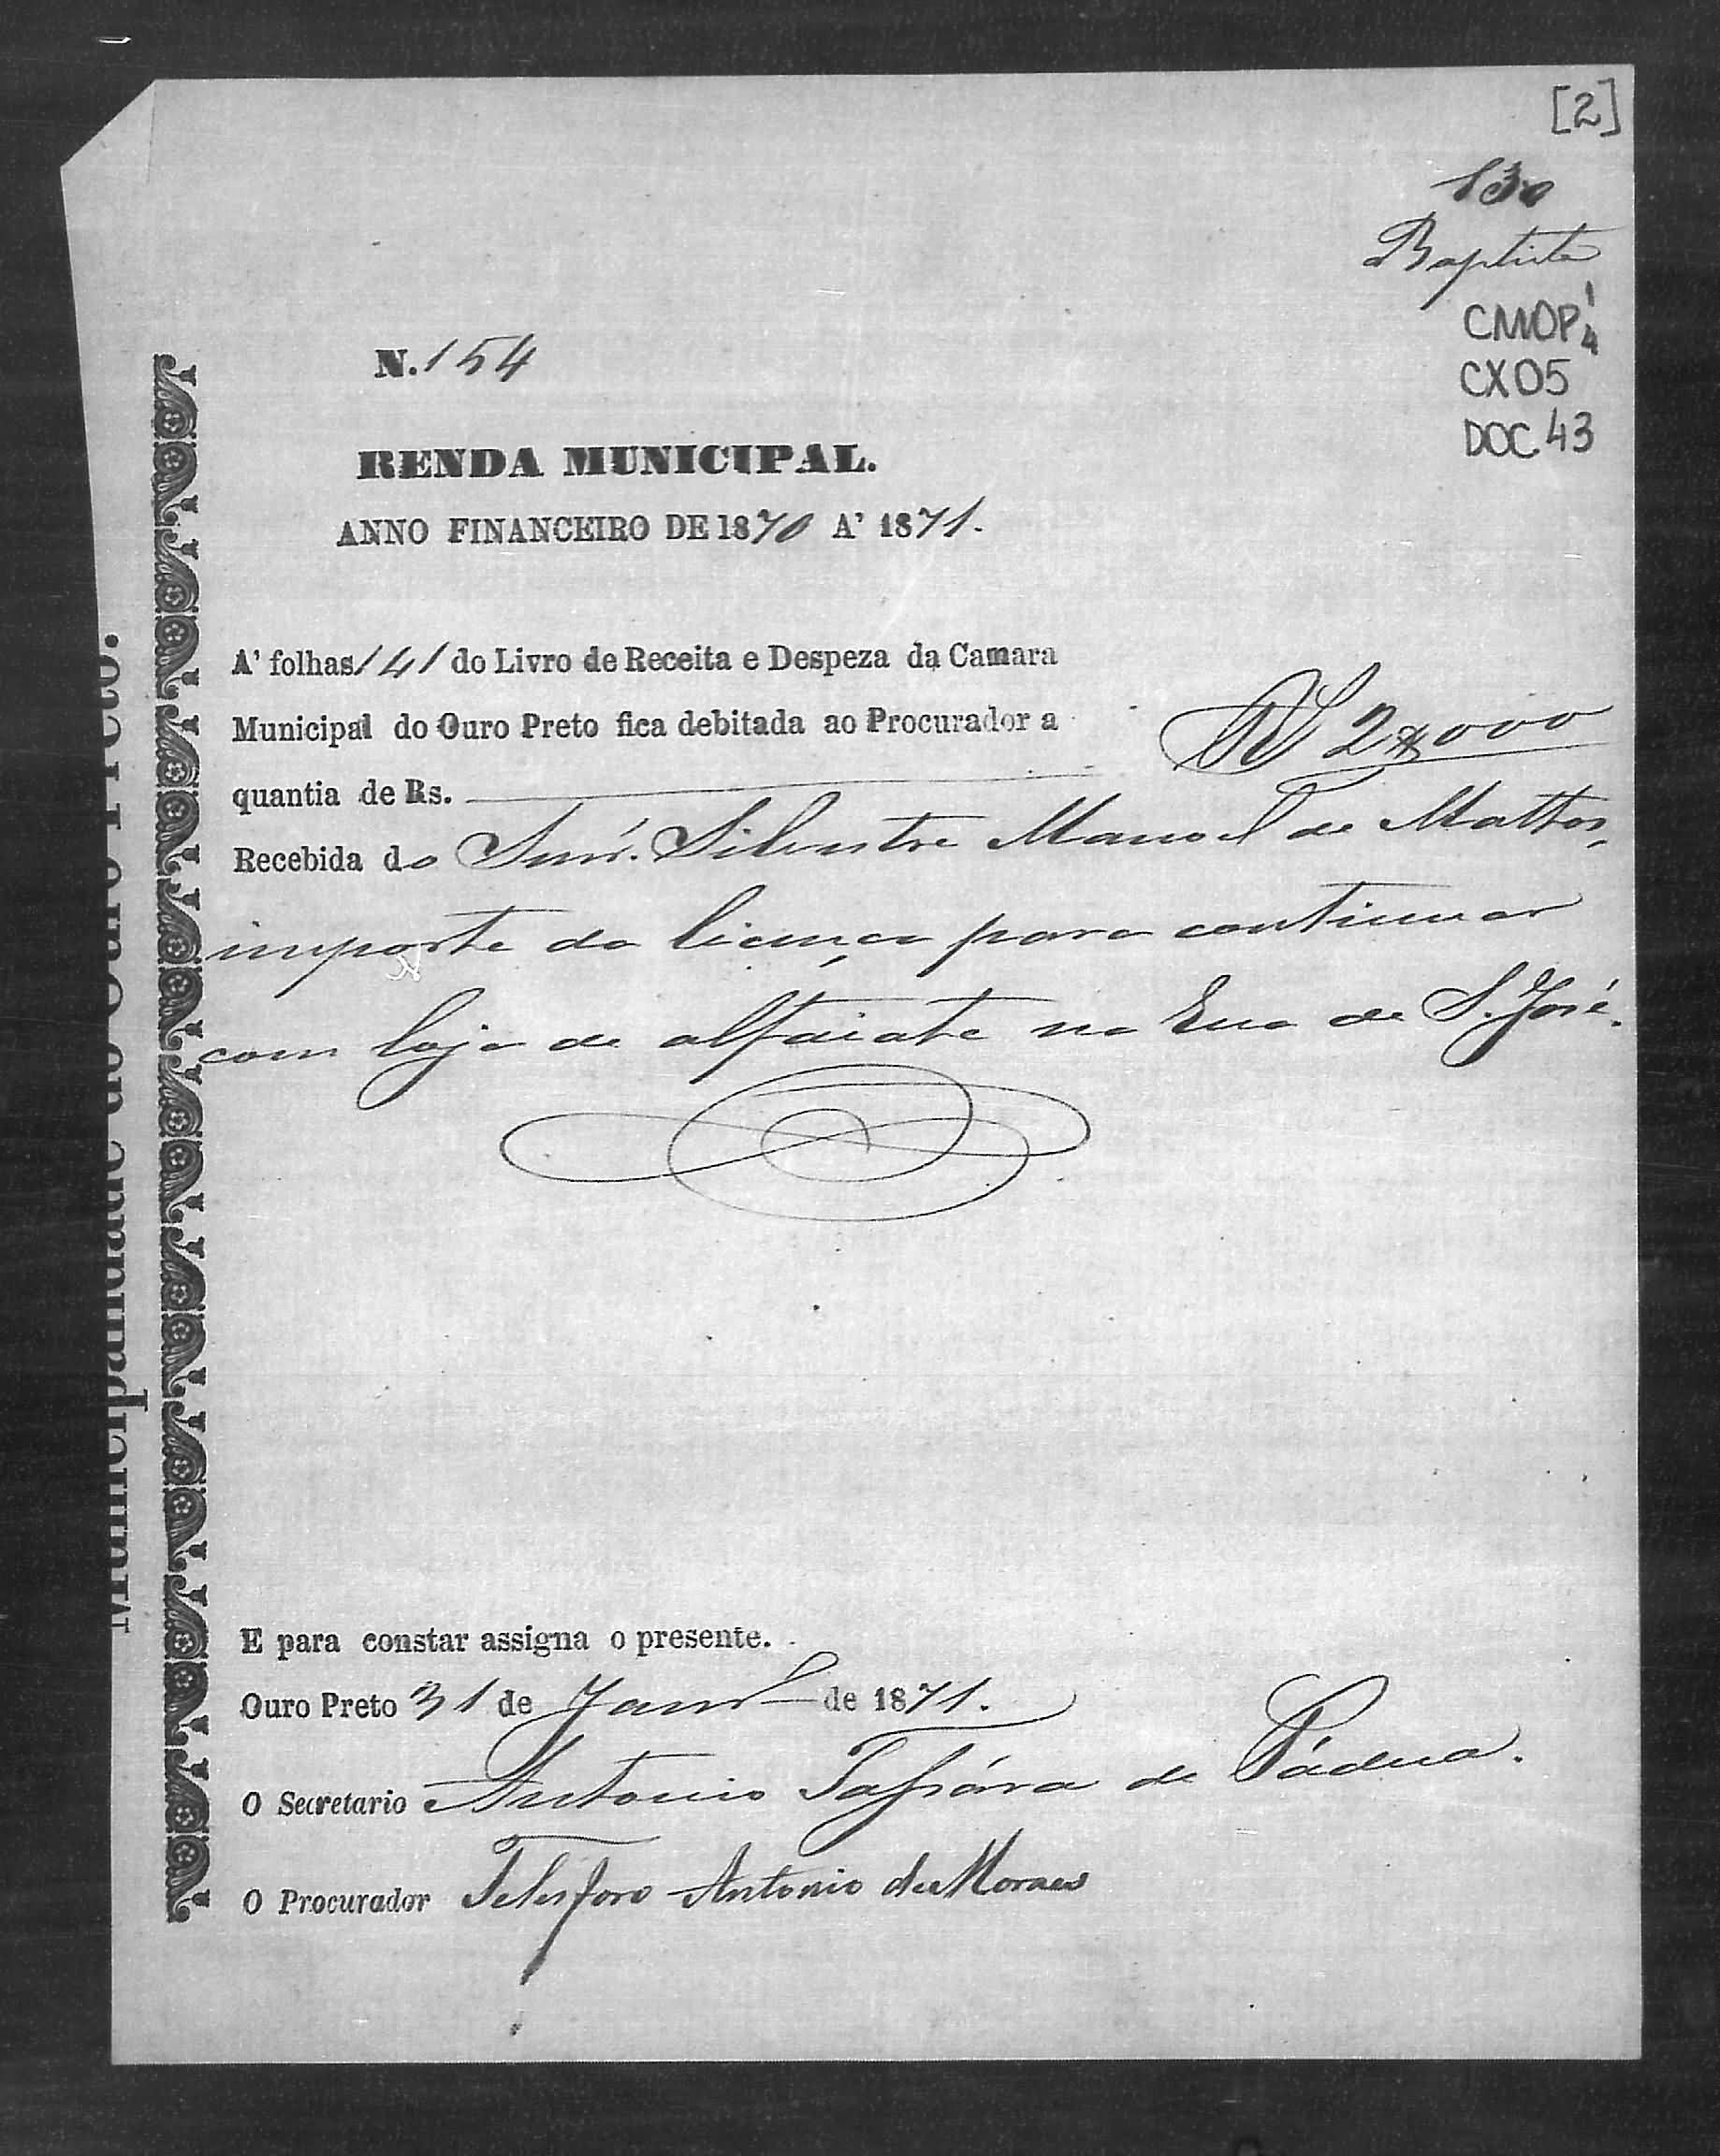 [2]
130
Baptista
CMOP 1/4
CX05
DOC.43
N. 154
RENDA MUNICIPAL.
ANNO FINANCEIRO DE 1870 A' 1871.
A' folhas 141 do Livro de Receita e Despeza da Camara
Municipal do Ouro Preto fica debitada ao Procurador a
quantia de Rs. R$ 2$000
Recebida do Snr. Silvestre Manoel de Mattos,
importe da licença para continuar
com loja de alfaiate na Rua de S. José.
E para constar assigna o presente.
Ouro Preto 31 de Janr.º de 1871.
O Secretario Antonio Tassára de Pádua.
O Procurador Telesforo Antonio de Moraes
Municipalidade do Ouro Preto.